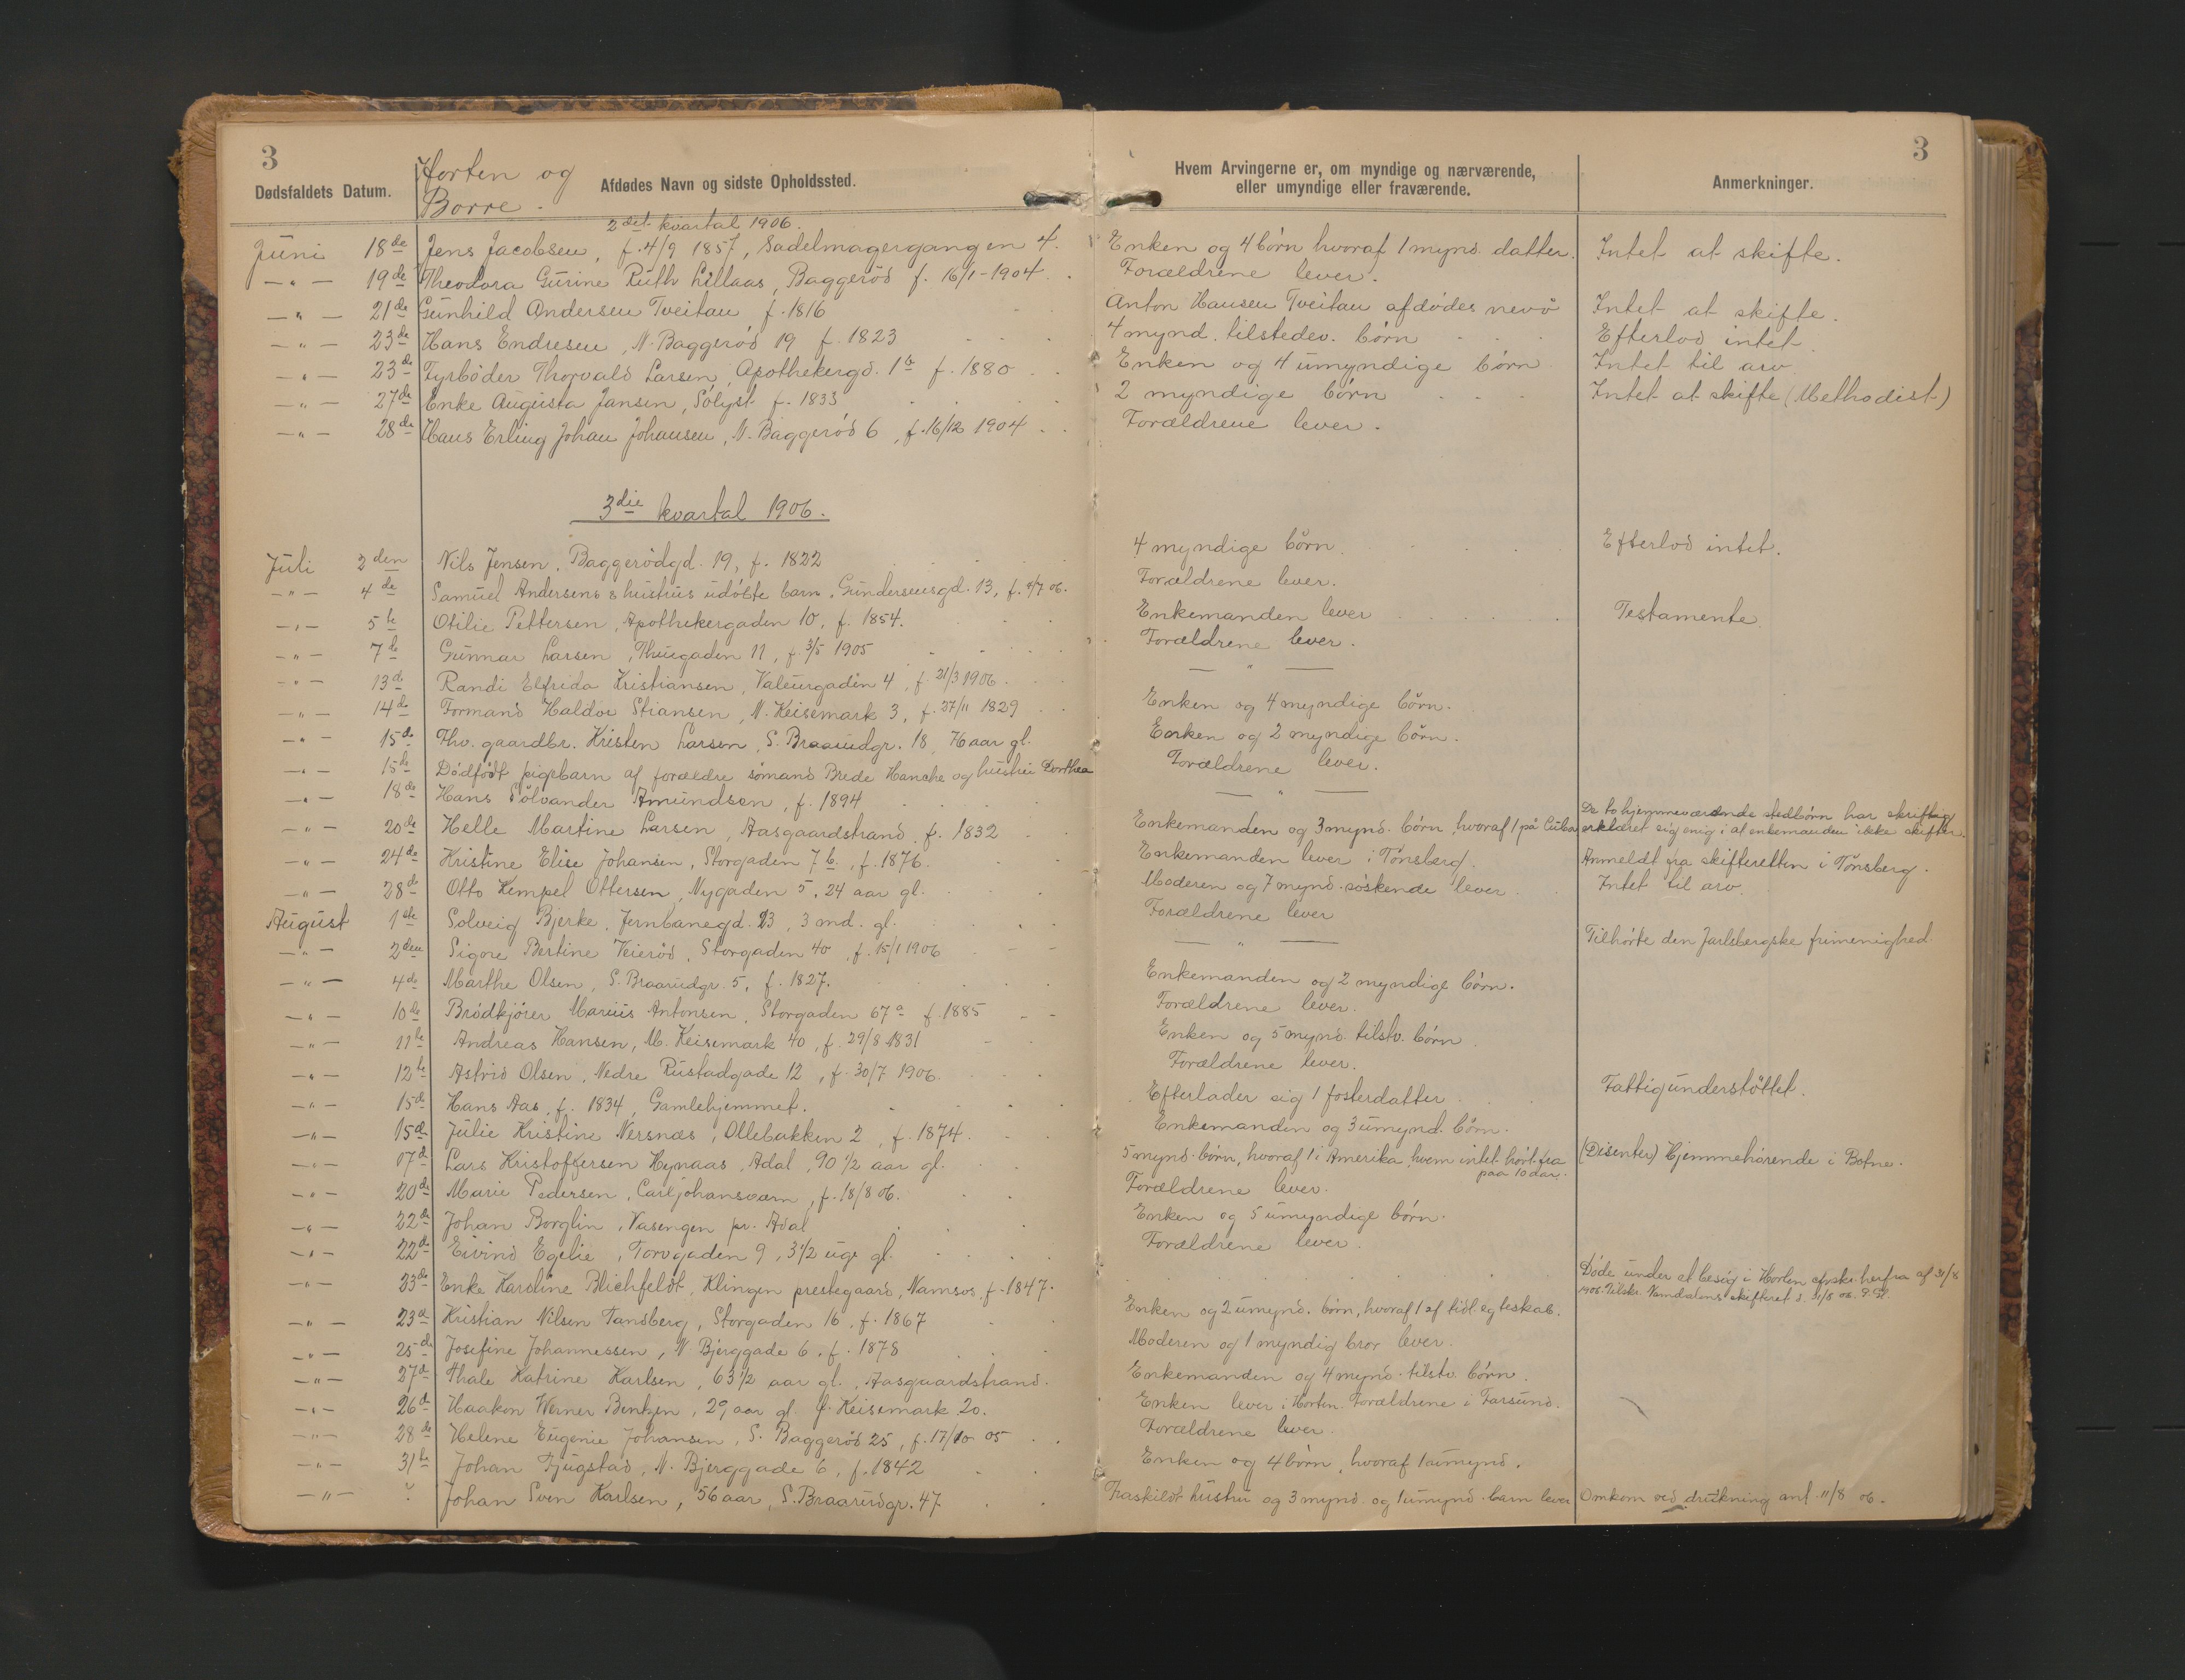 3
Horten og
Borre.
3
Dødsfaldets Datum.
Afdødes Navn og sidste Opholdssted.
Hvem Arvingerne er, om myndige og nærværende,
eller umyndige eller fraværende.
Anmerkninger.
2det kvartal 1906.
Juni 18de Jens Jacobsen, f. 4/9 1857, Sadelmagergangen 4. Enken og 4 børn hvoraf 1 mynd. datter. Intet at skifte.
—"— 19de Theodora Gurine Ruth Lillaas, Baggerød f. 16/1-1904. Forældrene lever.
—"— 21de Gunhild Andersen Tveitan f. 1816 Anton Hansen Tveitan afdødes nevø Intet at skifte.
—"— 23de Hans Endresen, N. Baggerød 19 f. 1823 4 mynd. tilstedev. børn Efterlod intet.
—"— 23de Fyrbøder Thorvald Larsen, Apothekergd. 1b f. 1880 Enken og 4 umyndige børn Intet til arv
—"— 27de Enke Augusta Jansen, Sølyst f. 1833 2 myndige børn Intet at skifte (Methodist)
—"— 28de Hans Erling Johan Johansen, N. Baggerød 6, f. 16/12 1904 Forældrene lever.
3die kvartal 1906.
Juli 2den Nils Jensen, Baggerødgd. 19, f. 1822 4 myndige børn Efterlod intet.
—"— 4de Samuel Andersens & hustrus udøbte barn, Gundersensgd. 13, f. 4/7 06. Forældrene lever.
—"— 5te Otilie Pettersen, Apothekergaden 10, f. 1854. Enkemanden lever Testamente
—"— 7de Gunnar Larsen, Thuegaden 11, f. 3/5 1905 Forældrene lever.
—"— 13de Randi Elfrida Kristiansen, Valeurgaden 4, f. 21/3 1906 — " —
—"— 14de Formand Haldor Stiansen, N. Keisemark 3, f. 27/11 1829 Enken og 4 myndige børn.
—"— 15de Fhv. gaardbr. Kristen Larsen, S. Braarudgr. 18, 76 aar gl. Enken og 2 myndige børn.
—"— 15de Dødfødt pigebarn af forældre sømand Brede Hanche og hustru Dorthea Forældrene lever.
—"— 18de Hans Sølvander Amundsen, f. 1894 — " —
—"— 20de Helle Martine Larsen, Aasgaardstrand, f. 1832 Enkemanden og 3 mynd. børn, hvoraf 1 på Cuba De to hjemmeværende stedbørn har skriftlig
erklæret sig enig i at enkemanden ikke skifter.
—"— 24de Kristine Elise Johansen, Storgaden 7b, f. 1876. Enkemanden lever i Tønsberg. Anmeldt fra skifteretten i Tønsberg.
—"— 28de Otto Kempel Ottersen, Nygaden 5, 24 aar gl. Moderen og 7 mynd. søskende lever Intet til arv.
August 1ste Solveig Bjerke, Jernbanegd. 23, 3 md. gl. Forældrene lever
—"— 2den Signe Bertine Veierød, Storgaden 40, f. 15/1 1906 — " — Tilhørte den Jarlsbergske frimenighed
—"— 4de Marthe Olsen, S. Braarudgr. 5, f. 1827. Enkemanden og 2 myndige børn.
—"— 10de Brødkjører Marius Antonsen, Storgaden 67a f. 1885 Forældrene lever.
—"— 11te Andreas Hansen, M. Keisemark 40, f. 29/8 1831 Enken og 5 mynd. tilstv. børn
—"— 12te Astrid Olsen, Nedre Rustadgade 12, f. 30/7 1906. Forældrene lever.
—"— 15de Hans Aas, f. 1834, Gamlehjemmet. Efterlader sig 1 fosterdatter Fattigunderstøttet.
—"— 15de Julie Kristine Nersnæs, Ollebakken 2, f. 1874. Enkemanden og 3 umynd. børn.
—"— 17de Lars Kristoffersen Hynaas, Adal, 90 1/2 aar gl. 5 mynd. børn, hvoraf 1 i Amerika, hvem intet hørt fra
paa 10 aar. (Disenter) Hjemmehørende i Botne.
—"— 20de Marie Pedersen, Carljohansværn, f. 18/8 06. Forældrene lever.
—"— 22de Johan Borglin, Vasengen pr. Adal Enken og 5 umyndige børn.
—"— 22de Eivind Egelie, Torvgaden 9, 3 1/2 uge gl. Forældrene lever.
—"— 23de Enke Karoline Blichfeldt, Klingen prestegaard, Namsos, f. 1847. Døde under et besøg i Horten afskr. herfra af 31/8
1906. Tilskr. Namdalens skifteret d. 31/8 06.
—"— 23de Kristian Nilsen Tandberg, Storgaden 16, f. 1867 Enken og 2 umynd. børn, hvoraf 1 af tidl. egteskab.
—"— 25de Josefine Johannessen, N. Bjerggade 6, f. 1878 Moderen og 1 myndig bror lever.
—"— 27de Thale Katrine Karlsen, 63 1/2 aar gl., Aasgaardstrand. Enkemanden og 4 mynd. tilstv. børn.
—"— 26de Haakon Werner Bentzen, 29 aar gl. Keisemark 20. Enken lever i Horten. Forældrene i Farsund.
—"— 28de Helene Eugenie Johansen, S. Baggerød 25, f. 17/10 05 Forældrene lever.
—"— 31te Johan Fjugstad, N. Bjerggade 6, f. 1842 Enken og 4 børn, hvoraf 1 umynd.
—"— ? Johan Sven Karlsen, 56 aar, S. Braarudgr. 47 Fraskildt hustru og 3 mynd. og 1 umynd. barn lever Omkom ved drukning ant. 11/8 06.